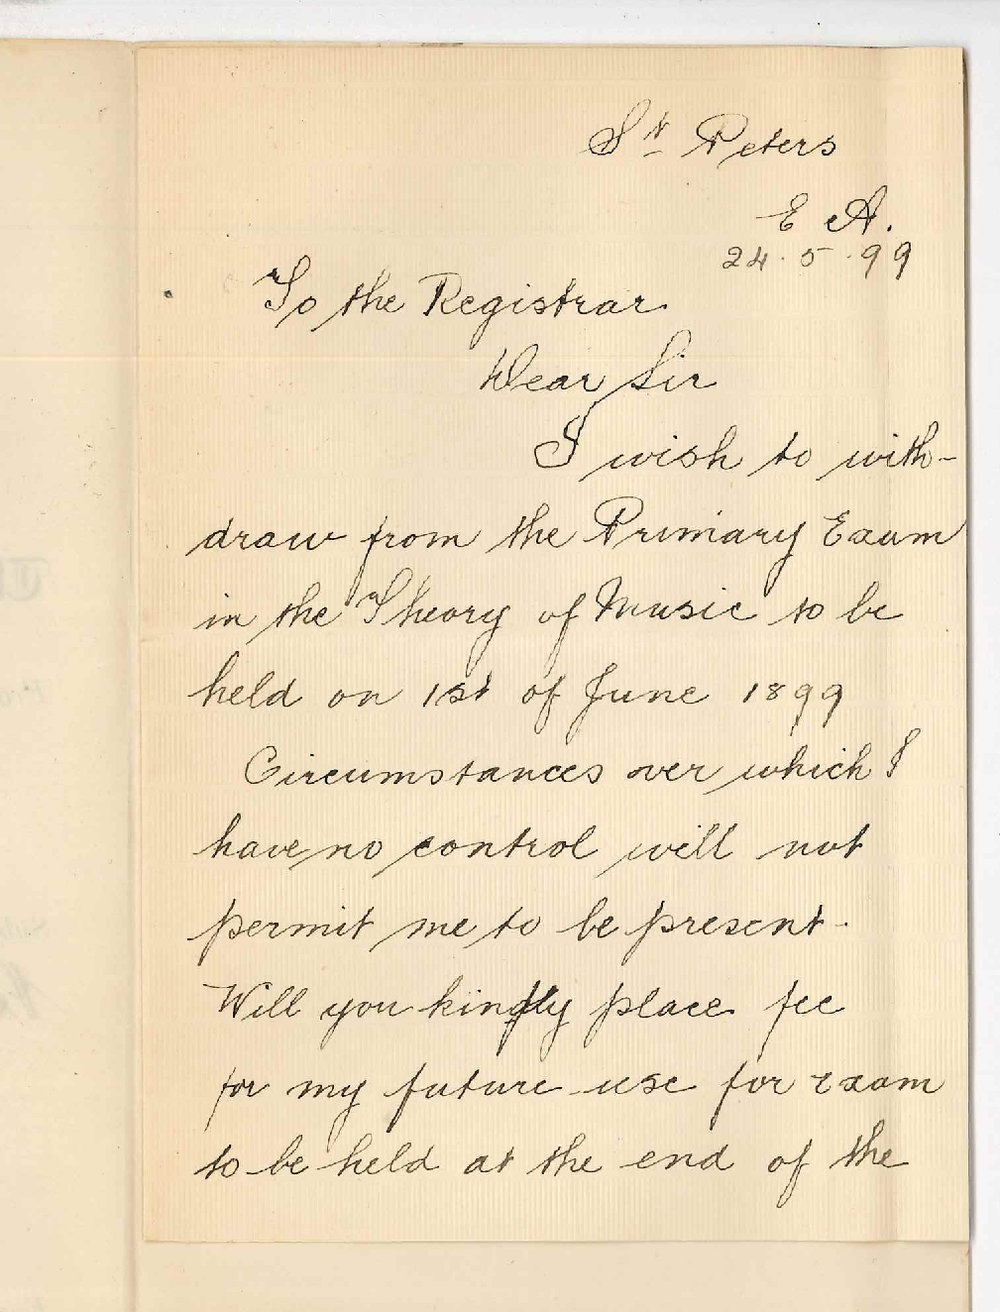 St Peters
E A.
24.5.99
To the Registrar
Dear Sir
I wish to with-
draw from the Primary Exam
in the Theory of Music to be
held on 1st of June 1899
Circumstances over which I
have no control will not
permit me to be present.
Will you kindly place fee
for my future use for exam
to be held at the end of the